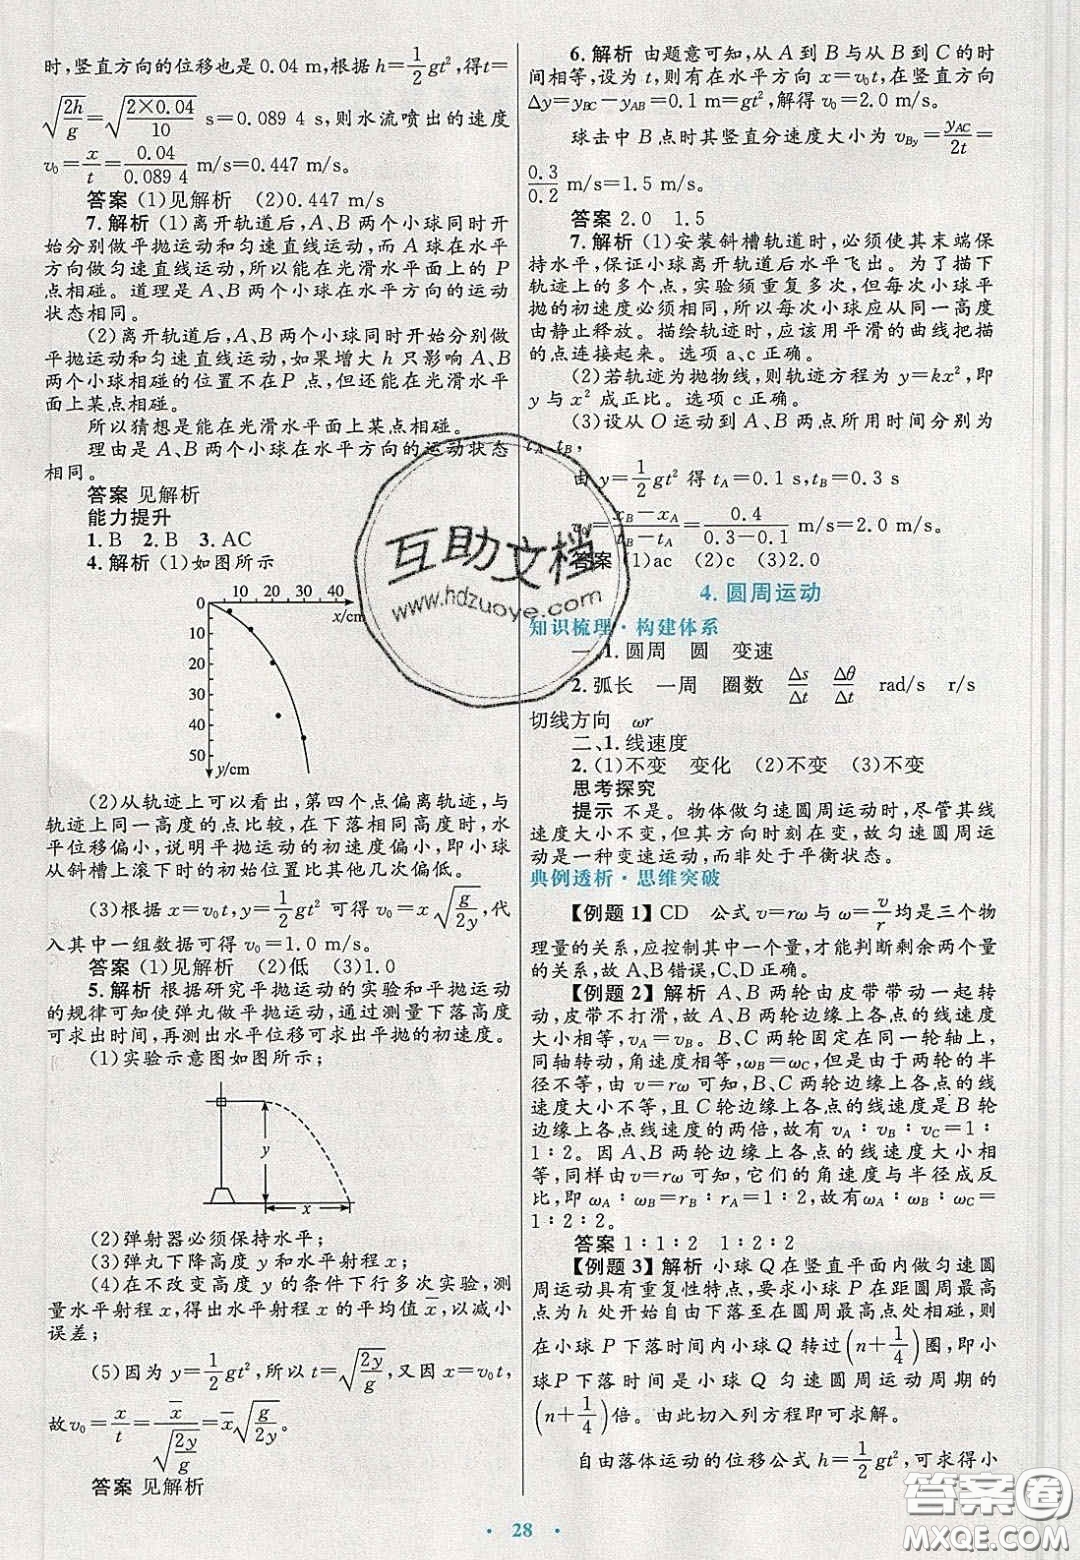 时,竖直方向的位移也是 0.04 m,根据 h=\frac{1}{2}gt²,得 t=
\sqrt{\frac{2h}{g}}=\sqrt{\frac{2×0.04}{10}} s=0.089 4 s,则水流喷出的速度
v₀=\frac{x}{t}=\frac{0.04}{0.089 4} m/s=0.447 m/s。
答案 (1)见解析 (2)0.447 m/s
7. 解析 (1)离开轨道后,A、B 两个小球同时开
始分别做平抛运动和匀速直线运动,而 A 球在水平
方向做匀速直线运动,所以能在光滑水平面上的 P
点相碰。道理是 A、B 两个小球在水平方向的运动
状态相同。
(2)离开轨道后,A、B 两个小球同时开始分别做
平抛运动和匀速直线运动,如果增大 h 只影响 A、B
两个小球相碰的位置不在 P 点,但还能在光滑水平
面上某点相碰。
所以猜想是能在光滑水平面上某点相碰。
理由是 A、B 两个小球在水平方向的运动状态
相同。
答案 见解析
能力提升
1. B 2. B 3. AC
4. 解析 (1)如图所示
0 10 20 30 40
x/cm
10
20
30
40
50
y/cm
(2)从轨迹上可以看出,第四个点偏离轨迹,与
轨迹上同一高度的点比较,在下落相同高度时,水
平位移偏小,说明平抛运动的初速度偏小,即小球
从斜槽上滚下时的初始位置比其他几次偏低。
(3)根据 x=v₀t,y=\frac{1}{2}gt² 可得 v₀=x\sqrt{\frac{g}{2y}},代
入其中一组数据可得 v₀=1.0 m/s。
答案 (1)见解析 (2)低 (3)1.0
5. 解析 根据研究平抛运动的实验和平抛运动
的规律可知使弹丸做平抛运动,通过测量下落高度
可求出时间,再测出水平位移可求出平抛的初速度。
(1)实验示意图如图所示;
y
x
(2)弹射器必须保持水平;
(3)弹丸下降高度 y 和水平射程 x;
(4)在不改变高度 y 的条件下行多次实验,测
量水平射程 x,得出水平射程 x 的平均值 x̄,以减小
误差;
(5)因为 y=\frac{1}{2}gt²,所以 t=\sqrt{\frac{2y}{g}},又因 x=v₀t,
故 v₀=\frac{x}{t}=\frac{x̄}{\sqrt{\frac{2y}{g}}}=x̄\sqrt{\frac{g}{2y}}。
答案 见解析
6. 解析 由题意可知,从 A 到 B 与从 B 到 C 的时
间相等,设为 t,则有在水平方向 x=v₀t,在竖直方向
Δy=y_{BC}-y_{AB}=0.1 m=gt²,解得 v₀=2.0 m/s。
球击中 B 点时其竖直分速度大小为 v_{By}=\frac{y_{AC}}{2t}=
\frac{0.3}{0.2} m/s=1.5 m/s。
答案 2.0 1.5
7. 解析 (1)安装斜槽轨道时,必须使其末端保
持水平,保证小球离开轨道后水平飞出。为了描下
轨迹上的多个点,实验须重复多次,但每次小球平
抛的初速度必须相同,所以每次小球应从同一高度
由静止释放。描绘轨迹时,应该用平滑的曲线把描
的点连接起来。选项 a、c 正确。
(2)若轨迹为抛物线,则轨迹方程为 y=kx²,即
y 与 x² 成正比。选项 c 正确。
(3)设从 O 运动到 A、B 两点所用时间分别为
t_A、t_B,
由 y=\frac{1}{2}gt² 得 t_A=0.1 s,t_B=0.3 s
v₀=\frac{x_B-x_A}{t_B-t_A}=\frac{0.4}{0.3-0.1} m/s=2.0 m/s。
答案 (1)ac (2)c (3)2.0
4. 圆周运动
知识梳理·构建体系
一、1. 圆周 圆 变速
2. 弧长 一周 圈数 \frac{Δs}{Δt} \frac{Δθ}{Δt} rad/s r/s
切线方向 ωr
二、1. 线速度
2. (1)不变 变化 (2)不变 (3)不变
思考探究
提示 不是。物体做匀速圆周运动时,尽管其线
速度大小不变,但其方向时刻在变,故匀速圆周运
动是一种变速运动,而非处于平衡状态。
典例透析·思维突破
【例题 1】CD 公式 v=rω 与 ω=\frac{v}{r}均是三个物
理量的关系,应控制其中一个量,才能判断剩余两个量
的关系,故 A、B 错误,C、D 正确。
【例题 2】解析 A、B 两轮由皮带带动一起转
动,皮带不打滑,故 A、B 两轮边缘上各点的线速度
大小相等,v_A=v_B。B、C 两轮固定在同一轮轴上,
同轴转动,角速度相等,ω_B=ω_C。但由于两轮的半
径不等,由 v=rω 可知,B、C 两轮边缘上各点的线
速度大小不等,且 C 轮边缘上各点的线速度是 B 轮
边缘上各点线速度的两倍,故有 v_A∶v_B∶v_C=1∶
1∶2。因 A、B 两轮边缘上各点的线速度大小相
等,同样由 v=rω 可知,它们的角速度与半径成反
比,即 ω_A∶ω_B=r_B∶r_A=1∶2,故有 ω_A∶ω_B∶ω_C=
1∶2∶2。
答案 1∶1∶2 1∶2∶2
【例题 3】解析 小球 Q 在竖直平面内做匀速圆
周运动具有重复性特点,要求小球 P 在距圆周最高
点为 h 处开始自由下落至在圆周最高点处相碰,则
在小球 P 下落时间内小球 Q 转过(n+\frac{1}{4})圈,即小
球P 下落时间是小球 Q 匀速圆周运动周期的
(n+\frac{1}{4})倍。由此切入列方程即可求解。
自由落体运动的位移公式 h=\frac{1}{2}gt²,可求得小
· 28 ·
互助文档
www.hdzuoye.com
答案圈
MXQE.COM